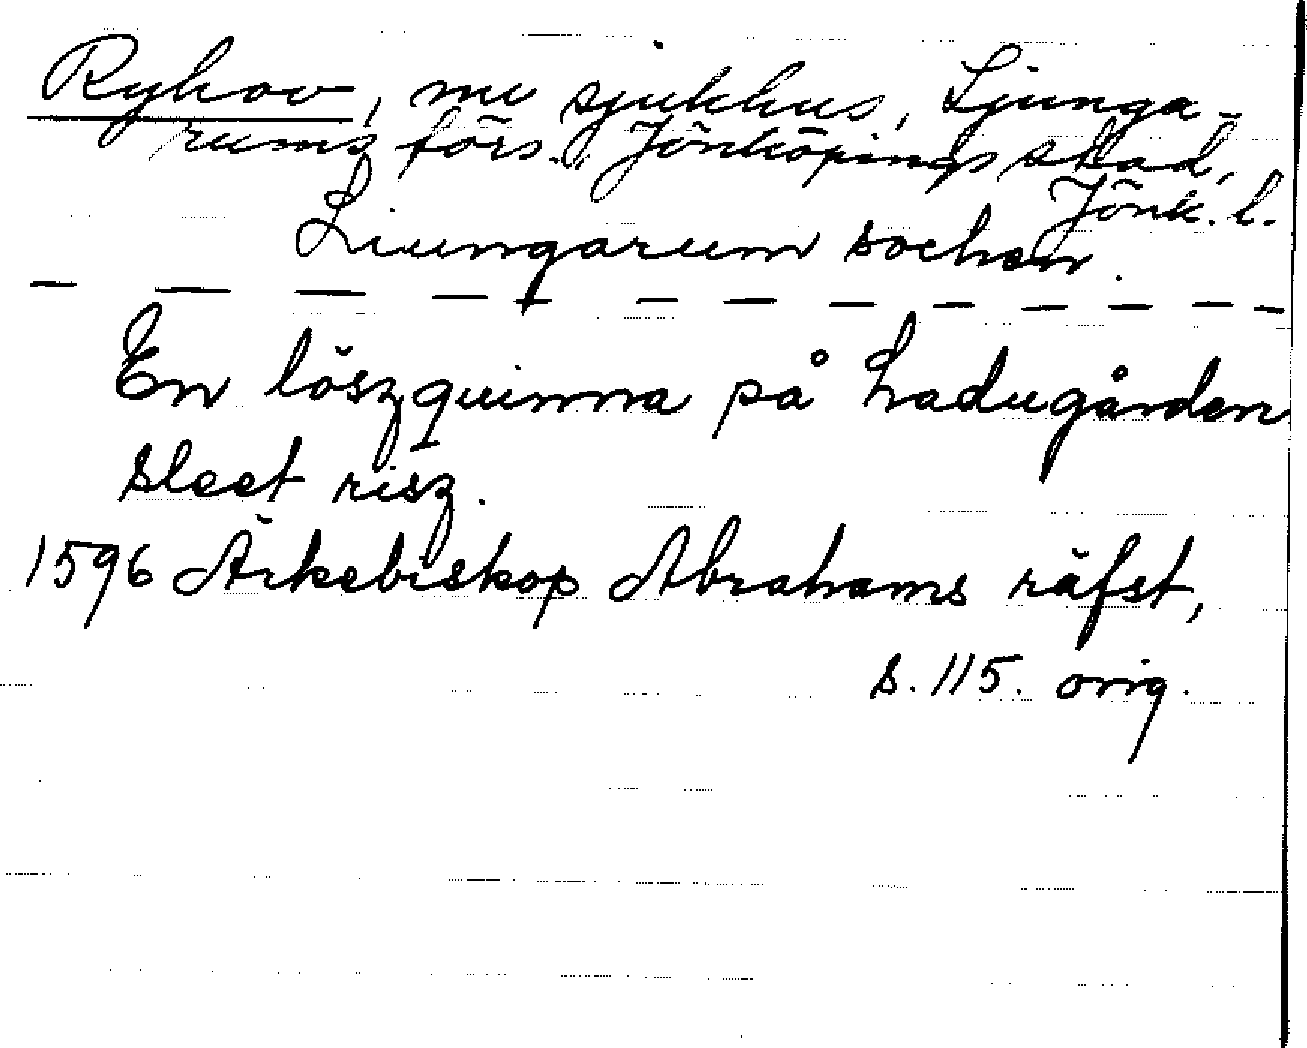 Ryhov, nu sjukhus, Ljunga-
rums förs., Jönköpings stad,
Jönk. l.
Liungarum sochen.
En lösz quinna på Ladugården
sleet risz.
1596 Ärkebiskop Abrahams räfst,
s. 115. orig.